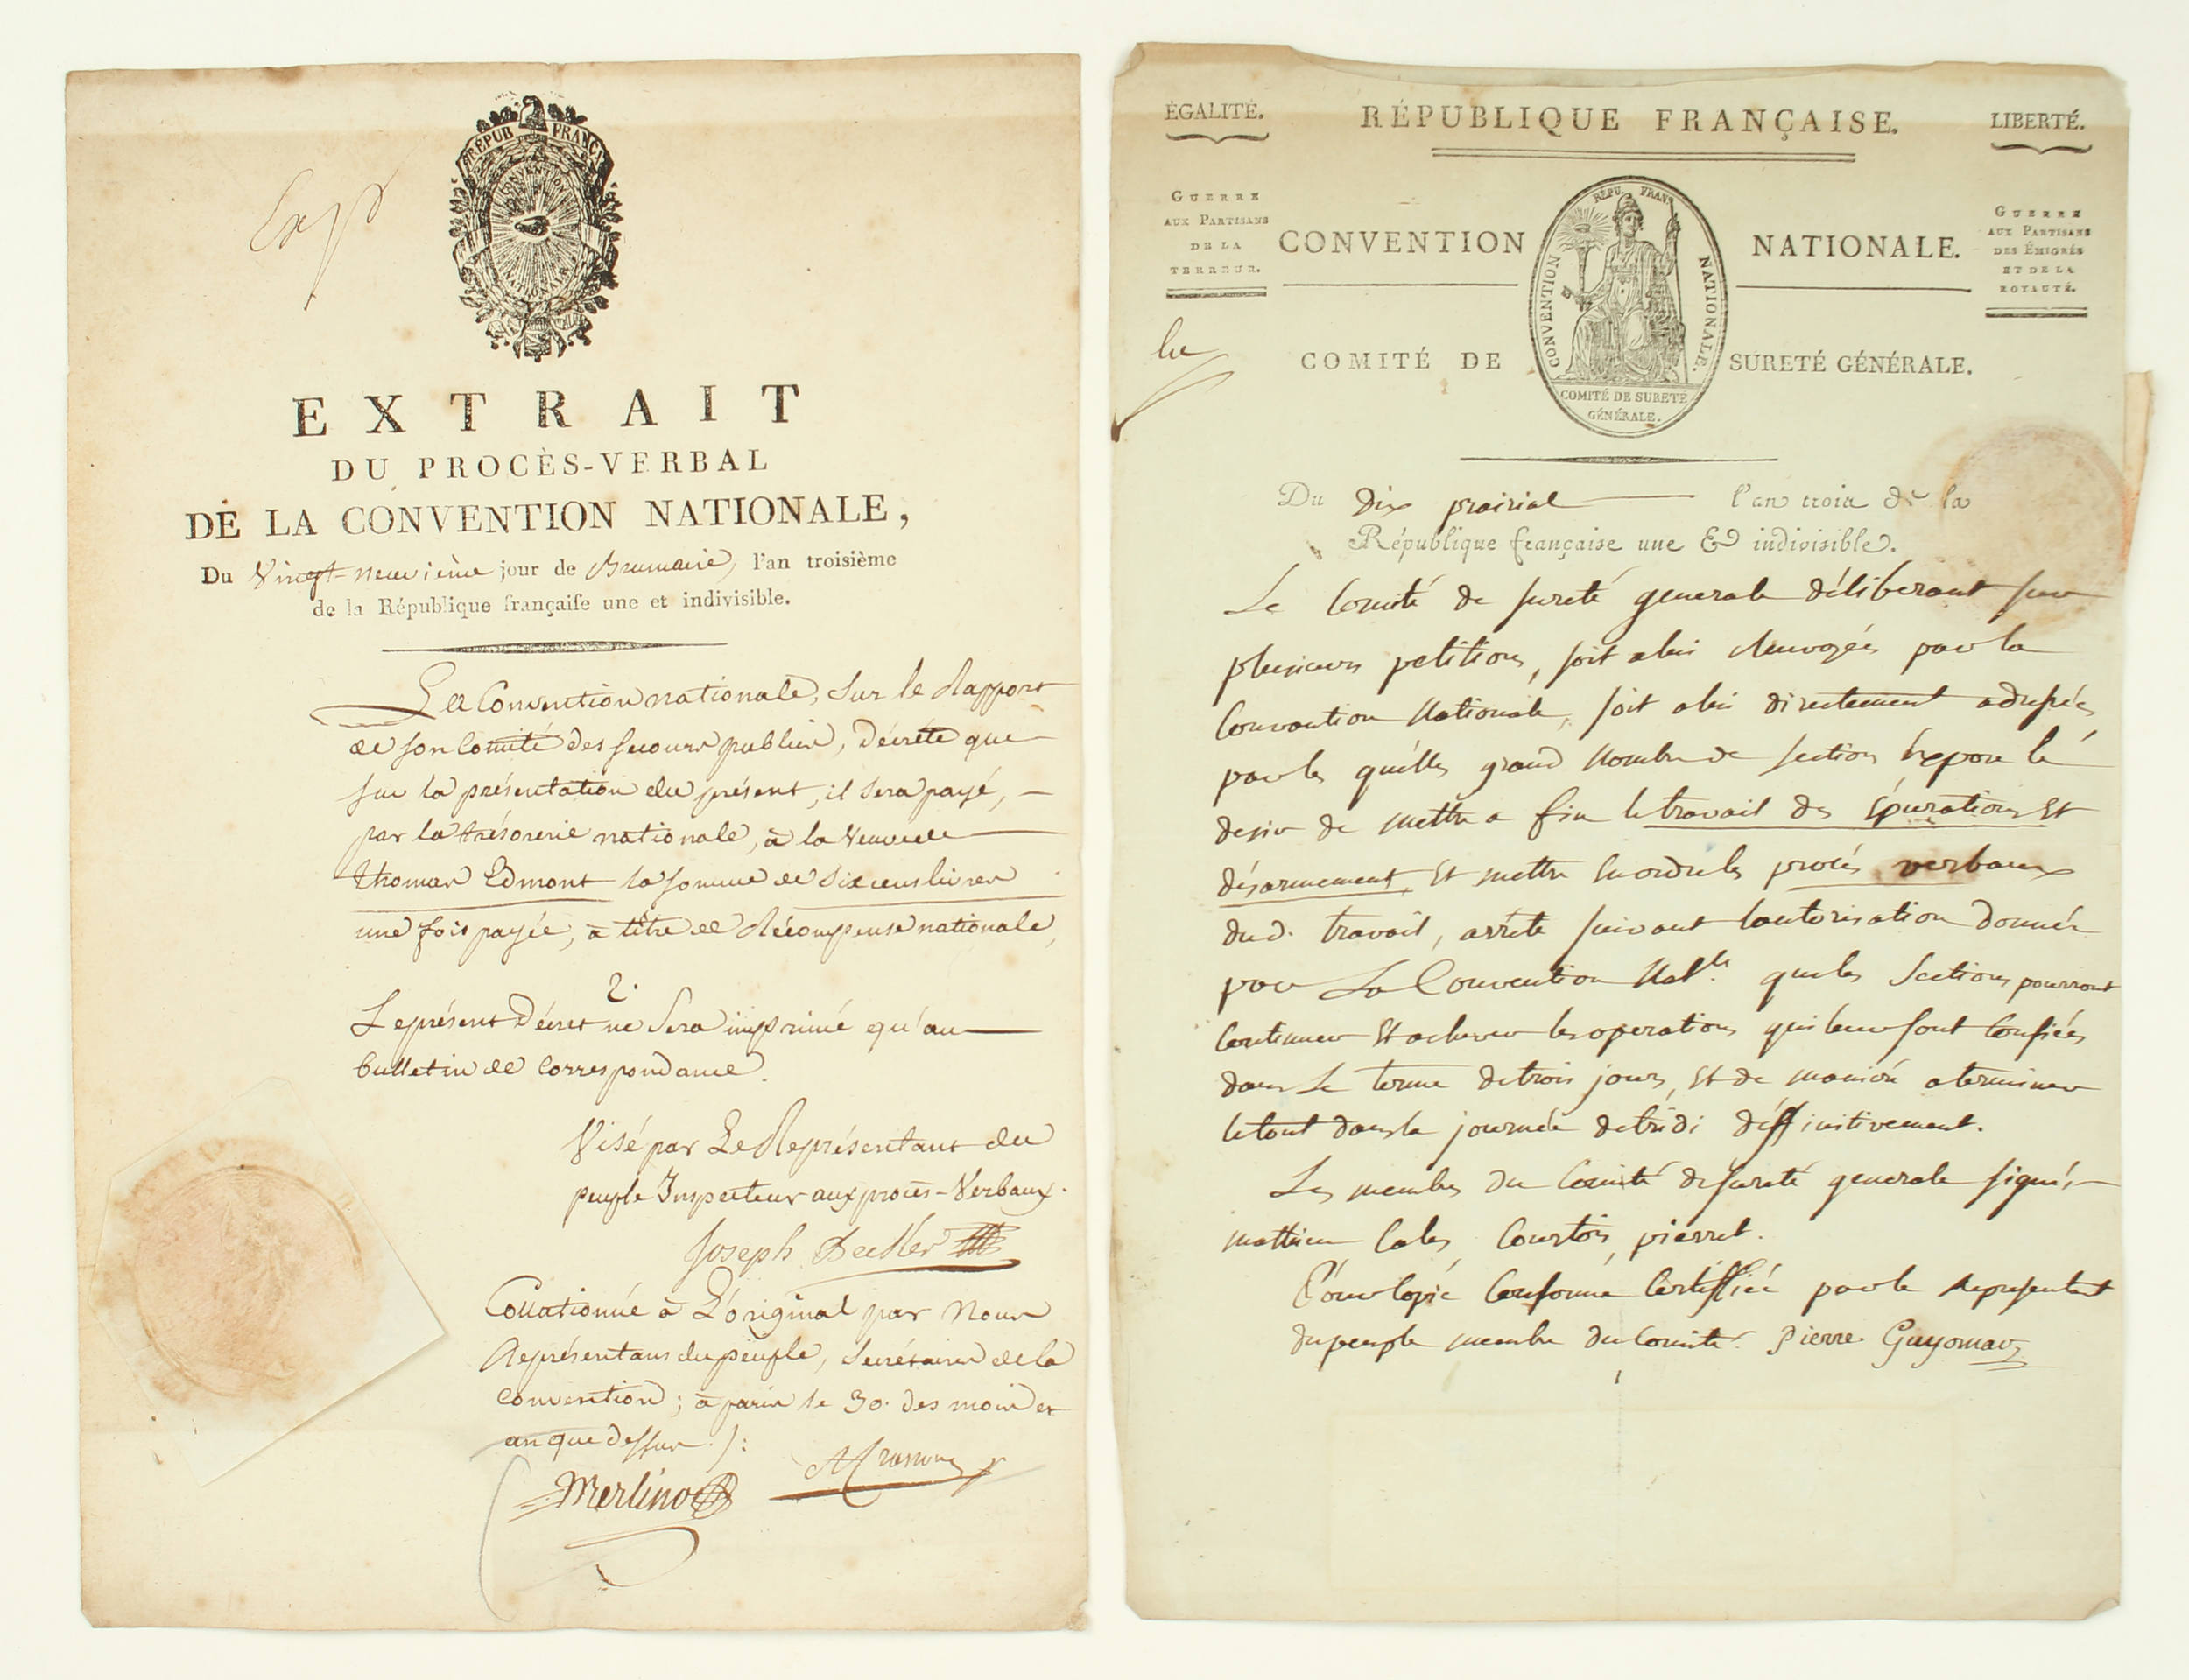 RÉPUB FRANÇ
CONVENTION
EXTRAIT
DU PROCÈS-VERBAL
DE LA CONVENTION NATIONALE,
Du Vingt-neuvième jour de Brumaire, l'an troisième
de la République françaiſe une et indivisible.
La Convention nationale, sur le Rapport
de son Comité des secours publics, Décrète que
sur la présentation du présent, il sera payé,
par la trésorerie nationale, à la veuve
thomas Edmont la somme de six cens livres
une fois payée, à titre de Récompense nationale,
2.
Le présent Décret ne sera imprimé qu'au
bulletin de correspondance.
Visé par Le Représentant du
peuple Inspecteur aux procès-Verbaux.
Joseph Becker
Collationné à L'original par Nous
Représentans du peuple, Secrétaires de la
Convention; à paris le 30. des mois et
an que dessus.
Merlino
ÉGALITÉ. RÉPUBLIQUE FRANÇAISE. LIBERTÉ.
GUERRE
AUX PARTISANS
DE LA
TERREUR.
CONVENTION NATIONALE.
GUERRE
AUX PARTISANS
DES ÉMIGRÉS
ET DE LA
ROYAUTÉ.
RÉPU. FRAN.
CONVENTION NATIONALE.
COMITÉ DE SURETÉ
GÉNÉRALE.
lu
COMITÉ DE SURETÉ GÉNÉRALE.
Du dix prairial l'an trois de la
République française une & indivisible.
Le Comité de sureté generale déliberant sur
plusieurs petitions, soit a lui Renvoyées par la
Convention Nationale, soit a lui directement adressées
par les quelles grand Nombre de section expose le
desir de mettre a fin le travail des épurations et
désarmement, et mettre en ordre les procès verbaux
dud. travail, arrête suivant l'autorisation donnée
par La Convention Natle. que les Sections pourront
Continuer et achever les operations qui leur sont Confiées
dans Le terme de trois jours, et de manière a terminer
le tout dans la journée de tridi déffinitivement.
Les membres du Comité de sureté generale signé,
mathieu Calès, Courtois, pierret.
Pour Copie Conforme Certiffiée par le Representant
du peuple membre du Comité. Pierre Guyomar